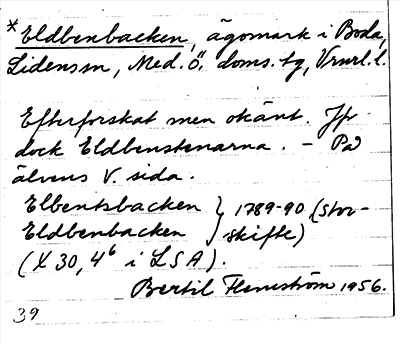 *Eldbenbacken, ägomark i Boda,
Lidens sn, Med. ö. doms. tg, Vrnrl. l.
Efterforskat men okänt. Jfr
dock Eldbenstenarna. - På
älvens V. sida.
Elbentsbacken } 1789-90 (stor-
Eldbenbacken } skifte)
(X 30, 4⁶ i LSA).
Bertil Flemström 1956.
39